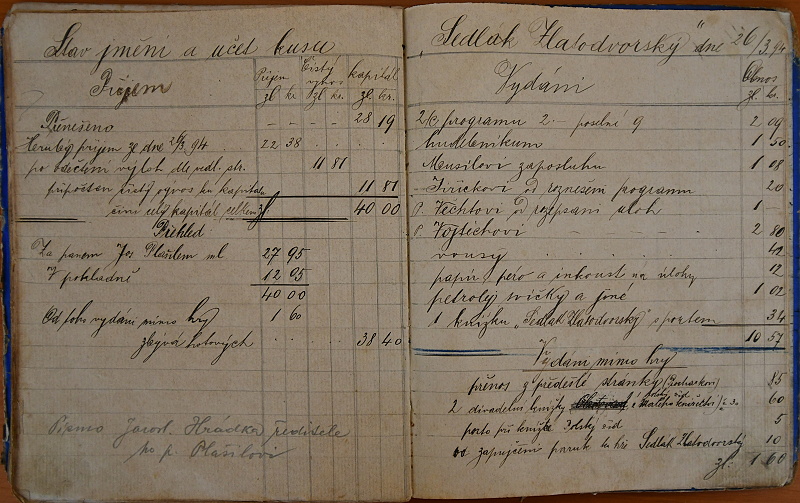 Stav jmění a účet kusu
Příjem
Příjem Čistý kapitál
zl kr. zl. kr. zl. kr.
Přenešeno - - - - 28 19
příjem ze dne 26/3. 94 . . 22 38
po odečtení výloh dle vedl. str. 11 81
připočten čistý ku kapitálu 11 81
činí celý kapitál 40 00
Přehled
Za panem Jos Plašilem ml 27 95
V pokladně 12 05
40 00
Od toho vydání mimo hry 1 60
zbývá hotových . . . . 38 40
Písmo Jarosl. Hrádka ředitele
po p. Plašilovi
„Sedlák Zlatodvorský" dne 26/3.94
Vydání
Obnos
zl. kr.
programu 2.- - poselné 9 2 09
hudebníkum 1 50
Musilovi zaposluhu 1 08
Jiříčkovi od roznesení programu 20
p. Vechtovi od rozepsaní uloh 1 -
p. Vojtěchovi - - 2 80
vousy . . . . . . 42
papír, pero a inkoust na úlohy 12
petrolej svíčky a jiné 1 02
1 knížku „Sedlák Zlatodvorský" s portem 34
10 57
Vydání mimo hry
přenos z předešlé stránky 85
2 divadelní knížky 60
porto při knížce 5
zapůjčení paruk ku hře Sedlák Zlatodvorský 10
zl: 1 60